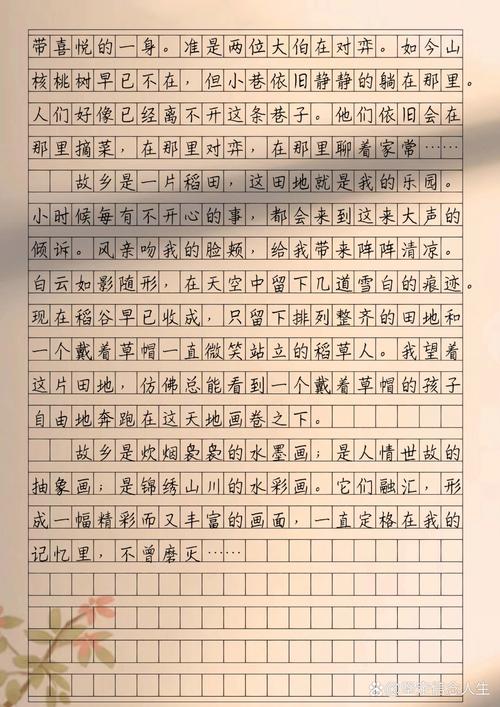 带喜悦的一身。准是两位大伯在对弈。如今山
核桃树早已不在，但小巷依旧静静的躺在那里。
人们好像已经离不开这条巷子。他们依旧会在
那里摘菜，在那里对弈，在那里聊着家常……
故乡是一片稻田，这田地就是我的乐园。
小时候每有不开心的事，都会来到这来大声的
倾诉。风亲吻我的脸颊，给我带来阵阵清凉。
白云如影随形，在天空中留下几道雪白的痕迹。
现在稻谷早已收成，只留下排列整齐的田地和
一个戴着草帽一直微笑站立的稻草人。我望着
这片田地，仿佛总能看到一个戴着草帽的孩子
自由地奔跑在这天地画卷之下。
故乡是炊烟袅袅的水墨画；是人情世故的
抽象画；是锦绣山川的水彩画。它们融汇，形
成一幅精彩而又丰富的画面，一直定格在我的
记忆里，不曾磨灭……